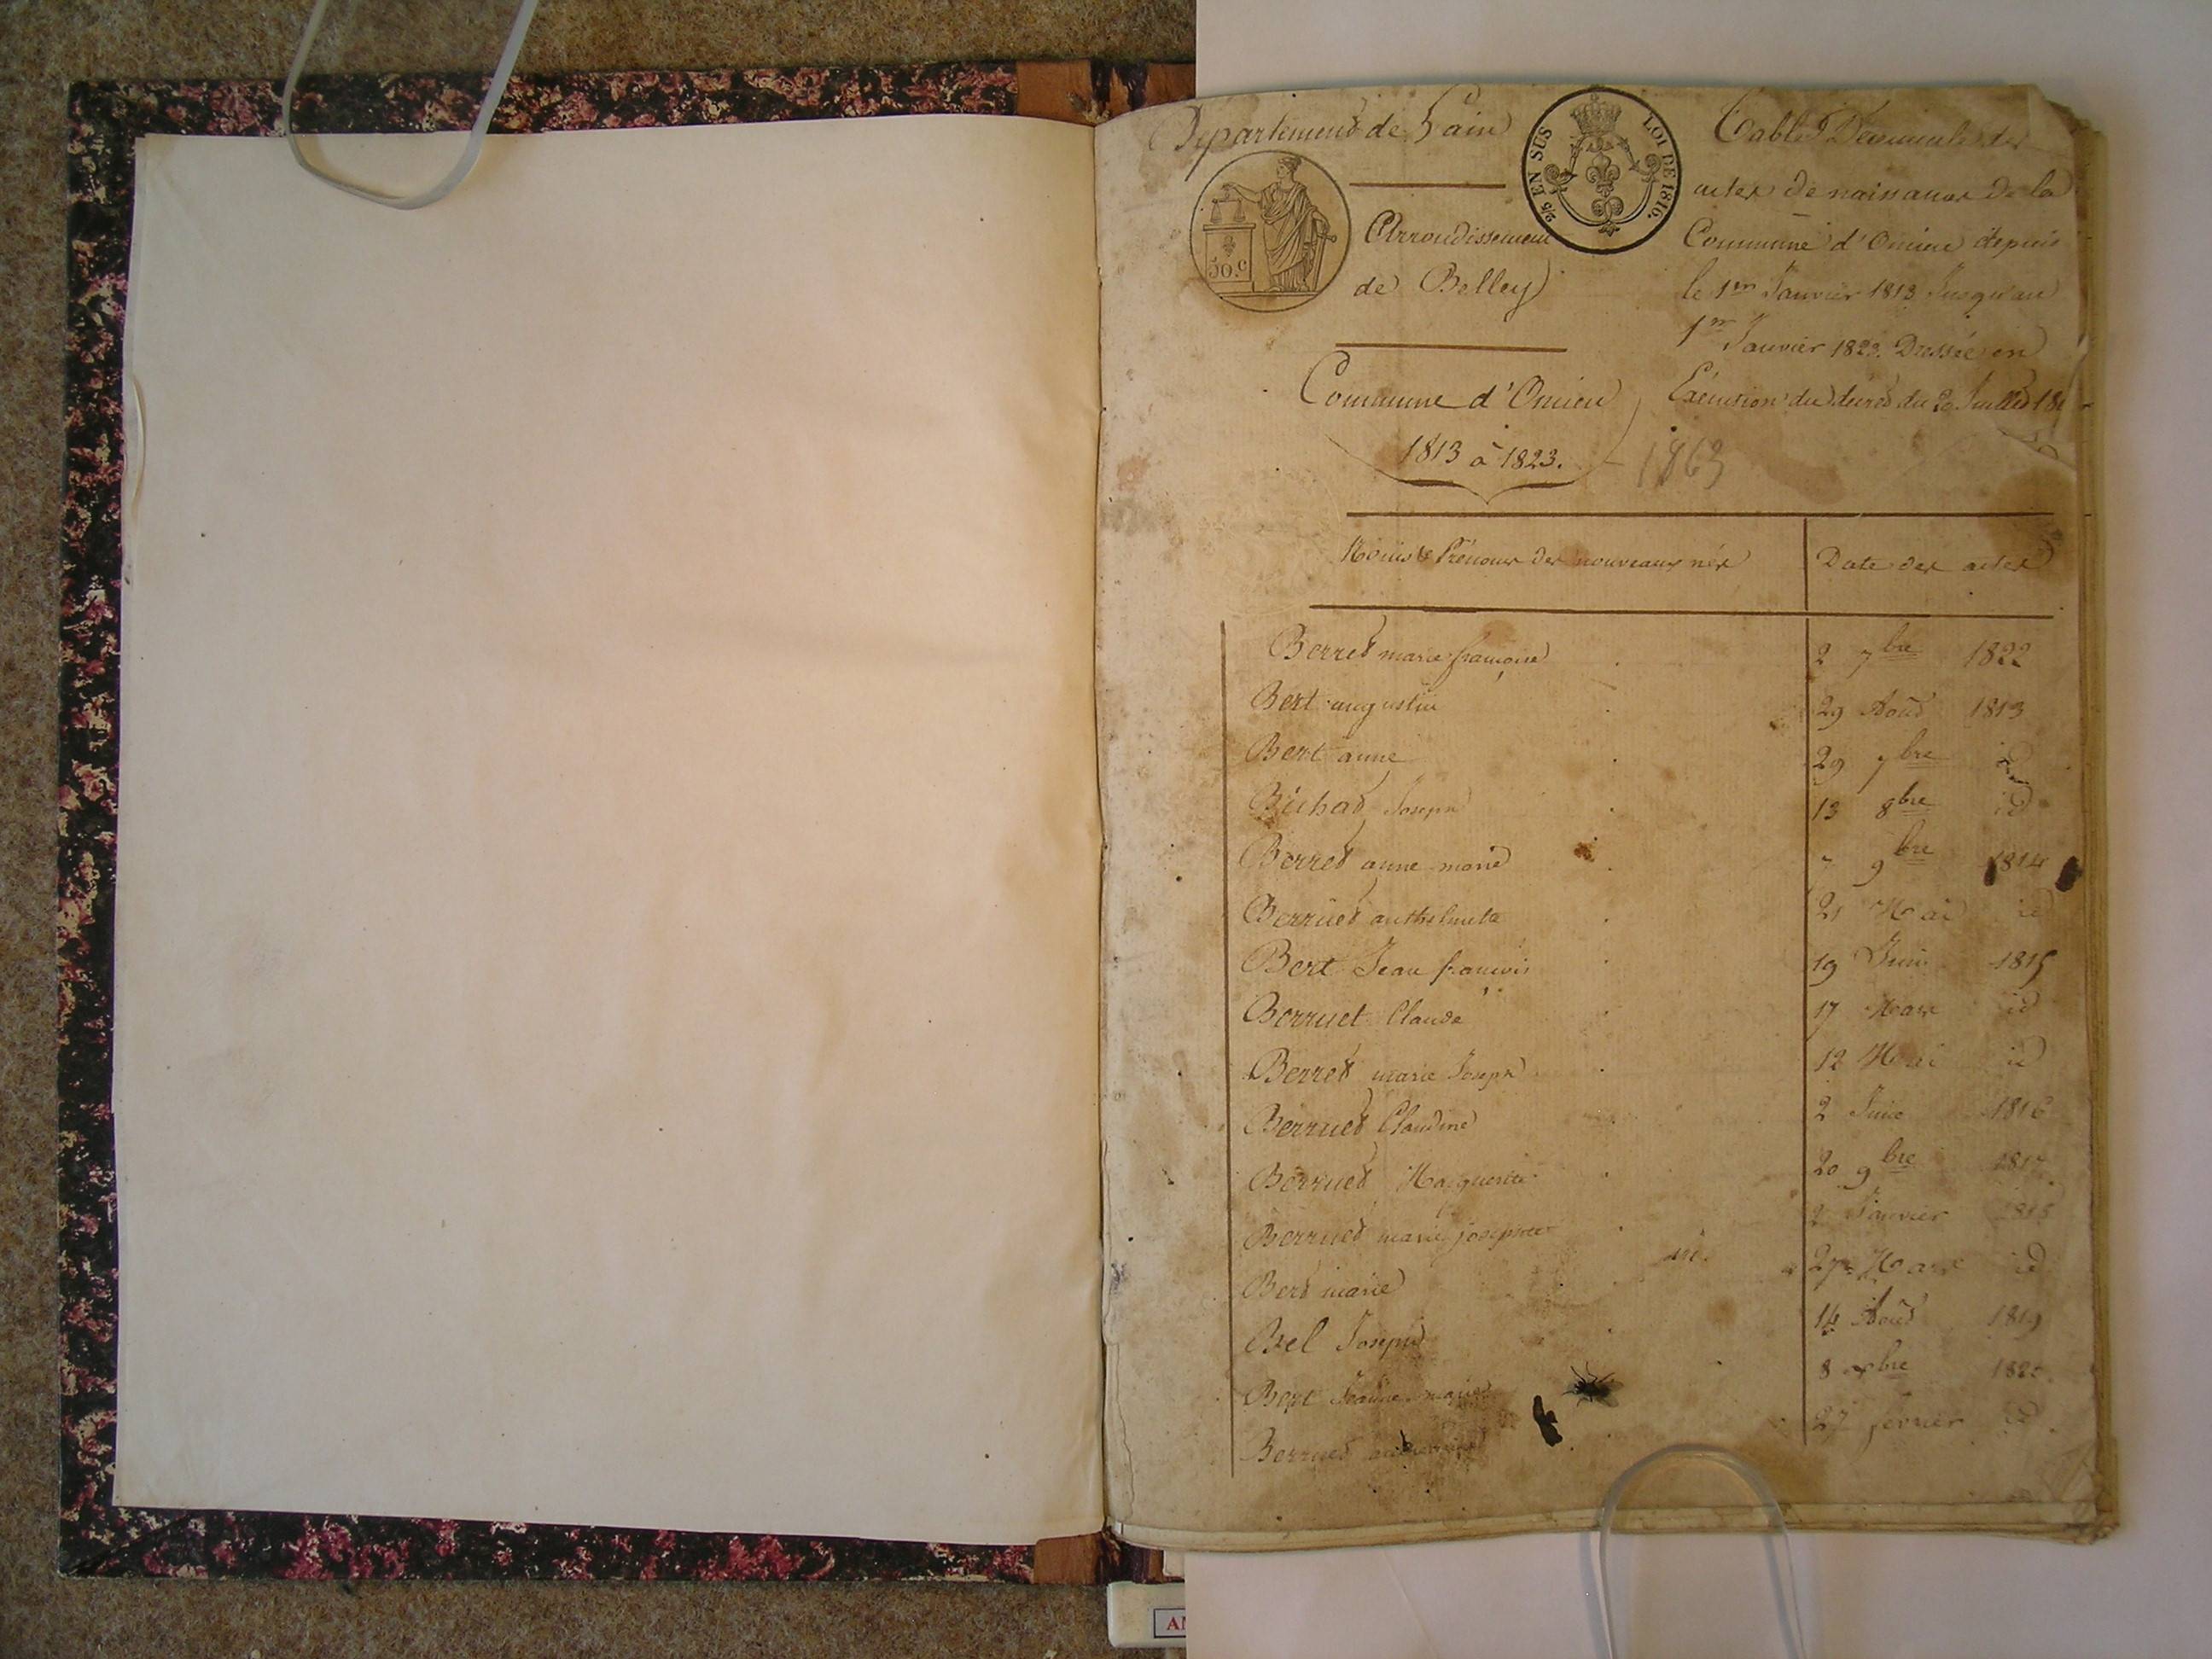 Département de l'ain
2/5 EN SUS LOI DE 1816.
50.c
Arrondissement
de Belley
Commune d'Oncieu
1813 à 1823.
1863
Table Décennale des
actes de naissances de la
Commune d'Oncieu depuis
le 1er Janvier 1813 Jusqu'au
1er Janvier 1823. Dressée en
Exécution du décret du 20 Juillet 18
Noms & Prénoms des nouveaux nés Date des actes
Berret marie françoise 2 7bre 1822
Bert augustin 29 Août 1813
Bert anne 29 7bre id
Bichat Joseph 13 8bre id
Berret anne marie 9bre 1814
Berruet anthelmette 21 Mai id
Bert Jean françois 19 Juin 1815
Berruet Claude 17 Mars id
Berret marie Joseph 12 Mai id
Berruet Claudine 2 Juin 1816
Berruet Marguerite 20 9bre 1817
Berruet marie josephte 2 Janvier 1818
Bert marie 27 Mars id
Bel Joseph 14 Août 1819
Bert Jeanne marie 8 bre
Berruet 27 février id
AM